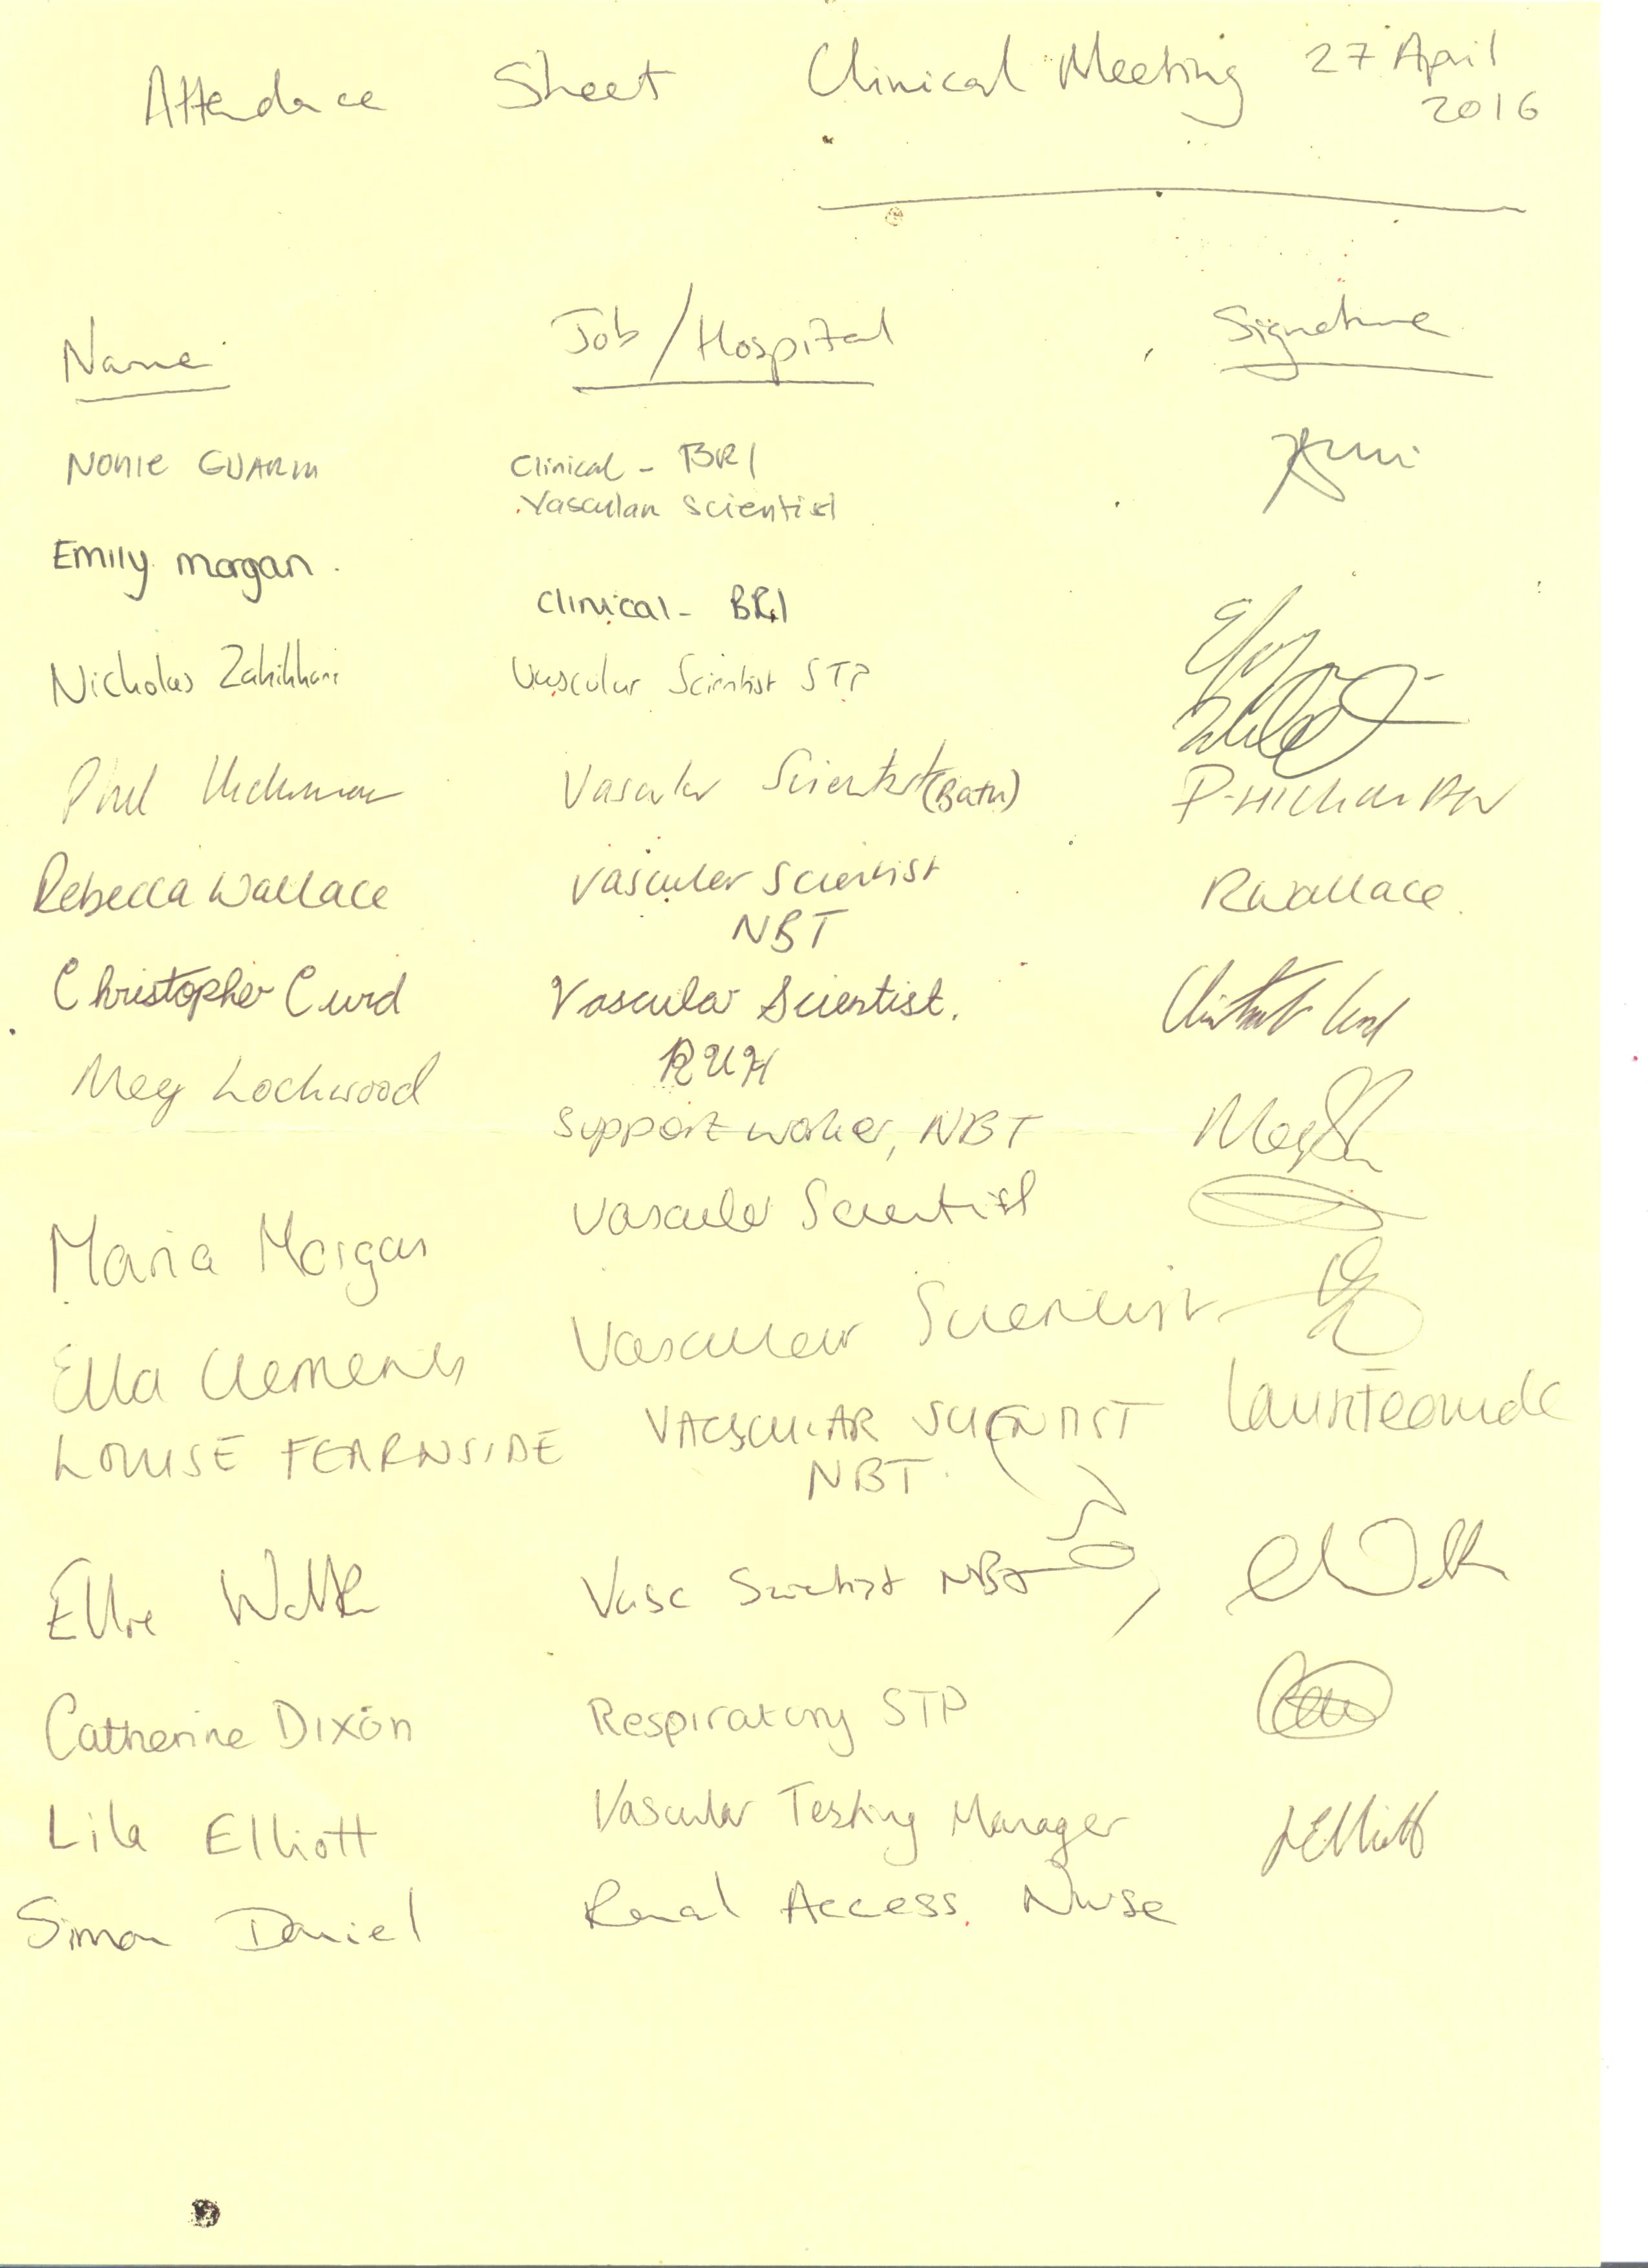 Attendace Sheet Clinical Meeting 27 April
2016
Name Job/Hospital Signature
NONIE Clinical - BRI
Vascular Scientist
Emily morgan.
Clinical - BRI
Nicholas Vascular Scientist STP
Phil Hickman Vascular Scientist (Bath) P. HICKMAN
Rebecca Wallace Vascular Scientist RWallace.
NBT
Christopher Curd Vascular Scientist.
RUH
Meg Lockwood
Support worker, NBT
Vascular Scientist
Maria Morgan
Ella Clements Vascular Scientist
LOUISE FEARNSIDE VASCULAR SCIENTIST
NBT.
Ellie Vasc Scientist NBT
Catherine Dixon Respiratory STP
Lila Elliott Vascular Testing Manager LElliott
Simon Daniel Renal Access Nurse